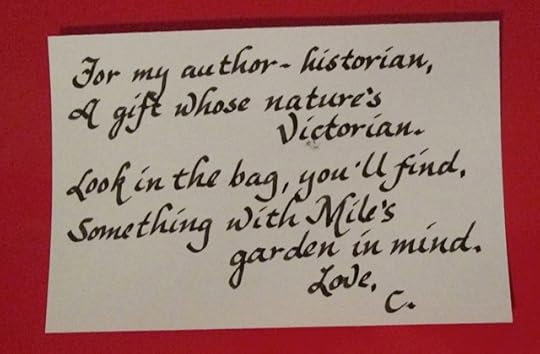 For my author-historian,
A gift whose nature's
Victorian.
Look in the bag, you'll find,
Something with Mile's
garden in mind.
Love,
C.